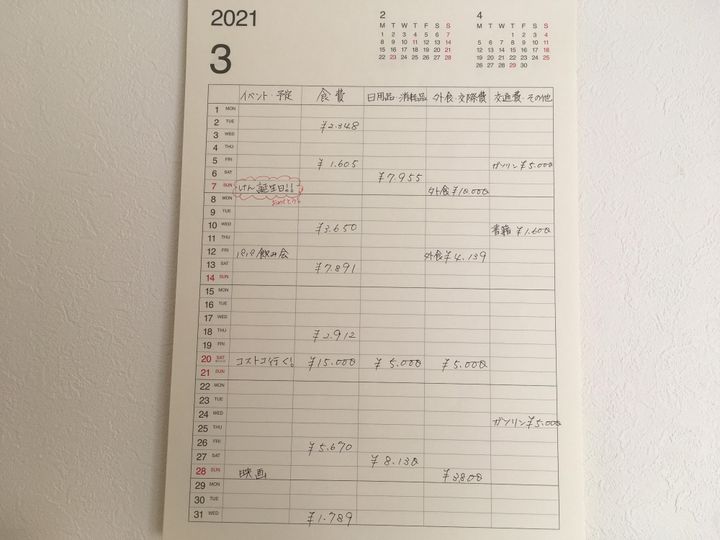 2021
3
2
M T W T F S S
1 2 3 4 5 6 7
8 9 10 11 12 13 14
15 16 17 18 19 20 21
22 23 24 25 26 27 28
4
M T W T F S S
1 2 3 4
5 6 7 8 9 10 11
12 13 14 15 16 17 18
19 20 21 22 23 24 25
26 27 28 29 30
イベント・予定 食費 日用品・消耗品 外食・交際費 交通費・その他
1 MON
2 TUE ¥2.348
3 WED
4 THU
5 FRI ¥1.605 ガソリン ¥5.000
6 SAT ¥7.955
7 SUN けん 誕生日!! 外食 ¥10.000
8 MON
9 TUE
10 WED ¥3.650 書籍 ¥1.600
11 THU
12 FRI パパ 飲み会 外食 ¥4.139
13 SAT ¥7.891
14 SUN
15 MON
16 TUE
17 WED
18 THU ¥2.912
19 FRI
20 SAT コストコ行く! ¥15.000 ¥5.000 ¥5.000
21 SUN
22 MON
23 TUE
24 WED ガソリン ¥5.000
25 THU
26 FRI ¥5.670
27 SAT ¥8.130
28 SUN 映画 ¥3800
29 MON
30 TUE
31 WED ¥1.789